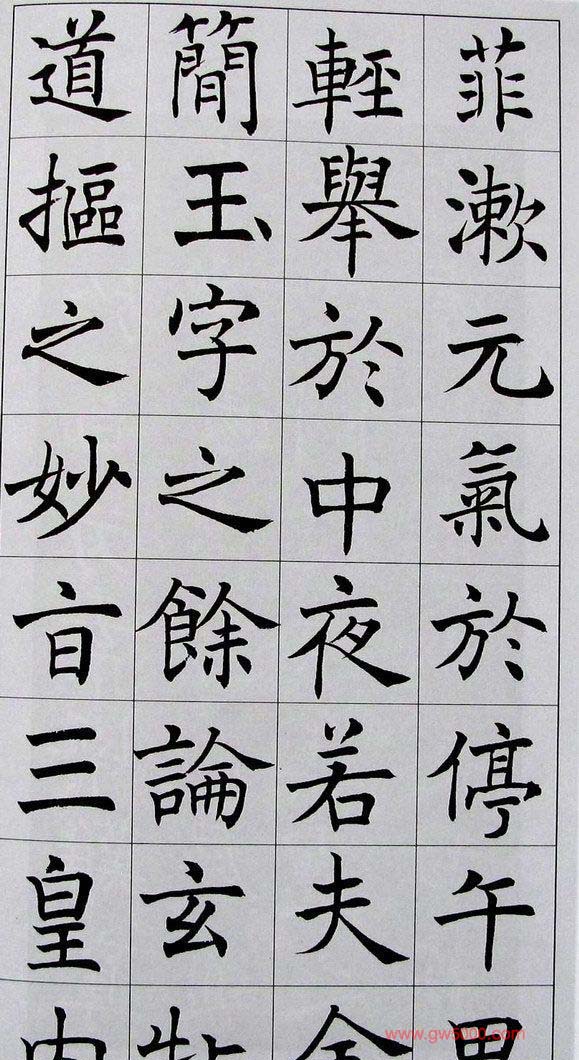 菲漱元氣於停午
輕舉於中夜若夫金
簡玉字之餘論玄牝
道摳之妙旨三皇内
www.gw5000.com